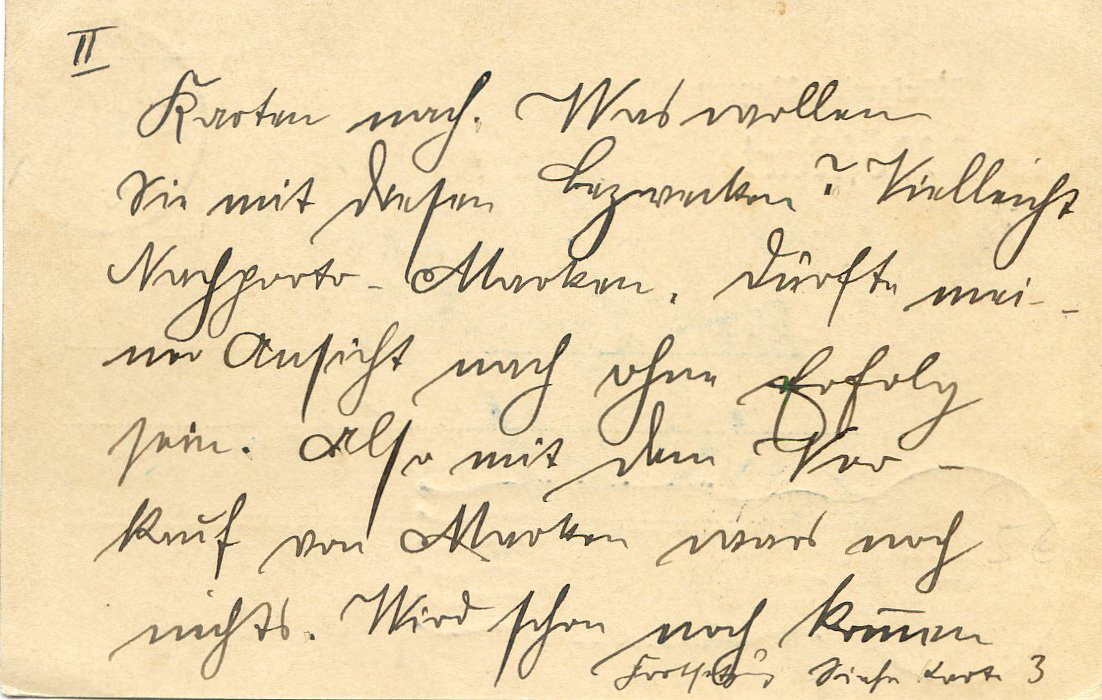 II
Karten nach. Was wollen
Sie mit diesen bezwecken? Vielleicht
Nachporto-Marken. Dürfte mei-
ner Ansicht nach ohne Erfolg
sein. Also mit dem Ver-
kauf von Marken wars noch
nichts. Wird schon noch kom̅en
Fortsetzg Siehe Karte 3